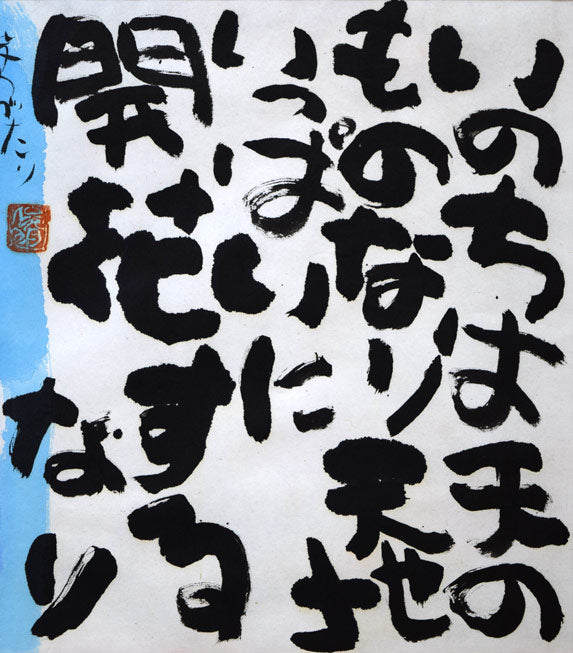 いのちは天の
ものなり天地
いっぱいに
開花する
なり